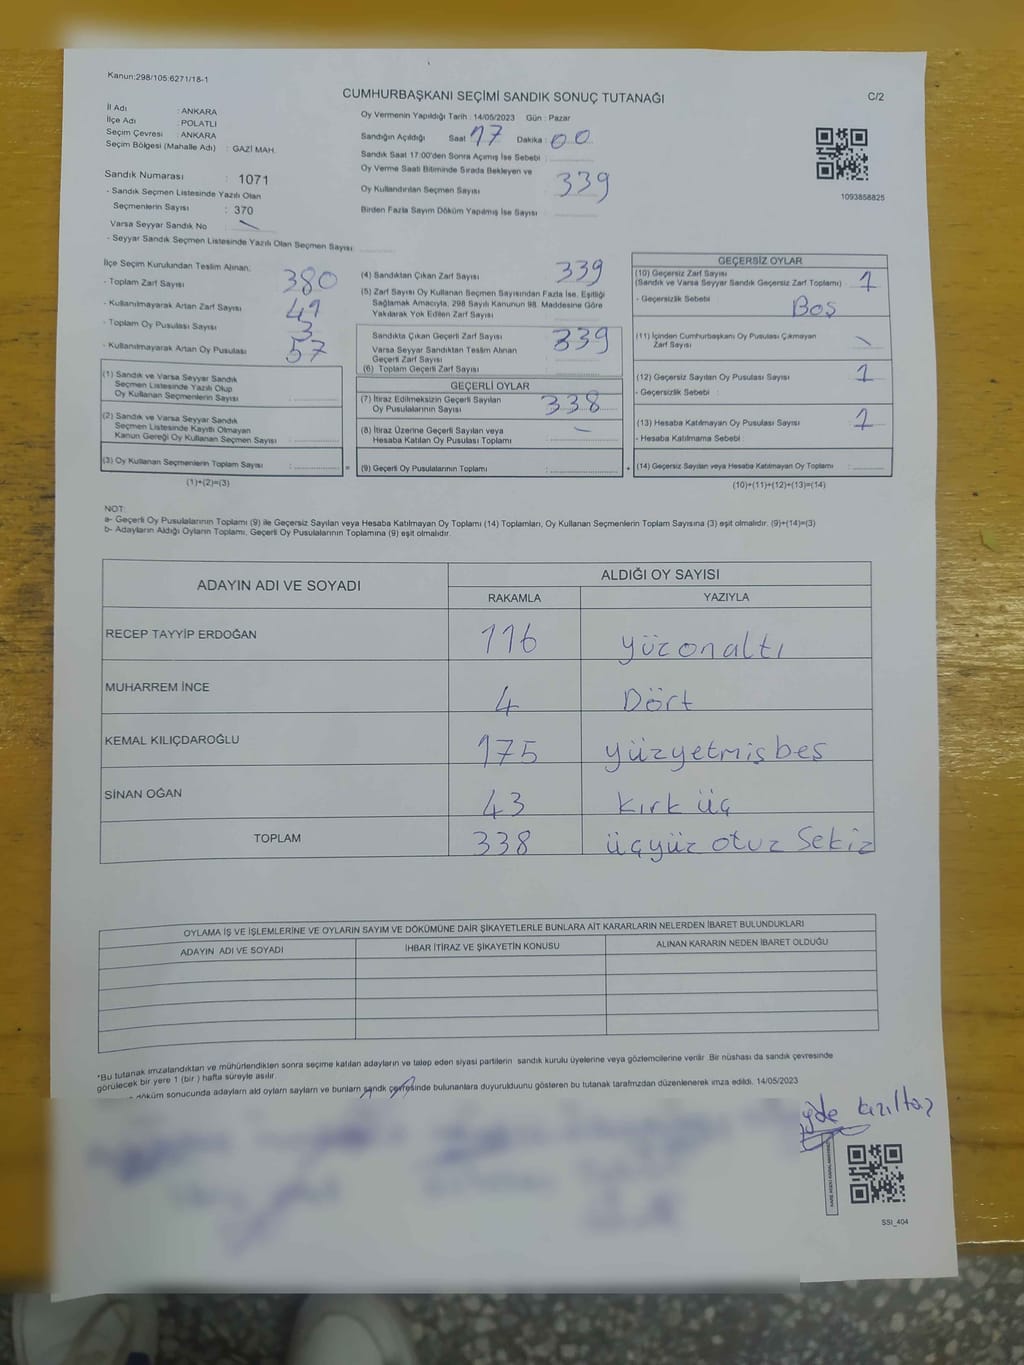 Kanun:298/105:6271/18-1
CUMHURBAŞKANI SEÇİMİ SANDIK SONUÇ TUTANAĞI
C/2
İl Adı : ANKARA
İlçe Adı : POLATLI
Seçim Çevresi : ANKARA
Seçim Bölgesi (Mahalle Adı) : GAZİ MAH.
Sandık Numarası : 1071
- Sandık Seçmen Listesinde Yazılı Olan
Seçmenlerin Sayısı : 370
Varsa Seyyar Sandık No
- Seyyar Sandık Seçmen Listesinde Yazılı Olan Seçmen Sayısı
Oy Vermenin Yapıldığı Tarih : 14/05/2023 Gün : Pazar
Sandığın Açıldığı Saat 17 Dakika : 00
Sandık Saat 17:00'den Sonra Açımış İse Sebebi :
Oy Verme Saati Bitiminde Sırada Bekleyen ve
Oy Kullandırılan Seçmen Sayısı 339
Birden Fazla Sayım Döküm Yapılmış İse Sayısı :
1093858825
İlçe Seçim Kurulundan Teslim Alınan;
- Toplam Zarf Sayısı 380
- Kullanılmayarak Artan Zarf Sayısı 41
- Toplam Oy Pusulası Sayısı 3
- Kullanılmayarak Artan Oy Pusulası 57
(1) Sandık ve Varsa Seyyar Sandık
Seçmen Listesinde Yazılı Olup
Oy Kullanan Seçmenlerin Sayısı :
(2) Sandık ve Varsa Seyyar Sandık
Seçmen Listesinde Kayıtlı Olmayan
Kanun Gereği Oy Kullanan Seçmen Sayısı :
(3) Oy Kullanan Seçmenlerin Toplam Sayısı : =
(1)+(2)=(3)
(4) Sandıktan Çıkan Zarf Sayısı 339
(5) Zarf Sayısı Oy Kullanan Seçmen Sayısından Fazla İse, Eşitliği
Sağlamak Amacıyla, 298 Sayılı Kanunun 98. Maddesine Göre
Yakılarak Yok Edilen Zarf Sayısı
Sandıkta Çıkan Geçerli Zarf Sayısı 339
Varsa Seyyar Sandıktan Teslim Alınan
Geçerli Zarf Sayısı
(6) Toplam Geçerli Zarf Sayısı
GEÇERLİ OYLAR
(7) İtiraz Edilmeksizin Geçerli Sayılan
Oy Pusulalarının Sayısı 338
(8) İtiraz Üzerine Geçerli Sayılan veya
Hesaba Katılan Oy Pusulası Toplamı
(9) Geçerli Oy Pusulalarının Toplamı : +
GEÇERSİZ OYLAR
(10) Geçersiz Zarf Sayısı
(Sandık ve Varsa Seyyar Sandık Geçersiz Zarf Toplamı) : 1
- Geçersizlik Sebebi : Boş
(11) İçinden Cumhurbaşkanı Oy Pusulası Çıkmayan
Zarf Sayısı
(12) Geçersiz Sayılan Oy Pusulası Sayısı 1
- Geçersizlik Sebebi :
(13) Hesaba Katılmayan Oy Pusulası Sayısı 1
- Hesaba Katılmama Sebebi :
(14) Geçersiz Sayılan veya Hesaba Katılmayan Oy Toplamı :
(10)+(11)+(12)+(13)=(14)
NOT:
a- Geçerli Oy Pusulalarının Toplamı (9) ile Geçersiz Sayılan veya Hesaba Katılmayan Oy Toplamı (14) Toplamları, Oy Kullanan Seçmenlerin Toplam Sayısına (3) eşit olmalıdır. (9)+(14)=(3)
b- Adayların Aldığı Oyların Toplamı, Geçerli Oy Pusulalarının Toplamına (9) eşit olmalıdır.
ADAYIN ADI VE SOYADI
ALDIĞI OY SAYISI
RAKAMLA YAZIYLA
RECEP TAYYİP ERDOĞAN 116 yüzonaltı
MUHARREM İNCE 4 Dört
KEMAL KILIÇDAROĞLU 175 yüzyetmişbeş
SİNAN OĞAN 43 kırk üç
TOPLAM 338 üçyüz otuz Sekiz
OYLAMA İŞ VE İŞLEMLERİNE VE OYLARIN SAYIM VE DÖKÜMÜNE DAİR ŞİKAYETLERLE BUNLARA AİT KARARLARIN NELERDEN İBARET BULUNDUKLARI
ADAYIN ADI VE SOYADI İHBAR İTİRAZ VE ŞİKAYETİN KONUSU ALINAN KARARIN NEDEN İBARET OLDUĞU
*Bu tutanak imzalandıktan ve mühürlendikten sonra seçime katılan adayların ve talep eden siyasi partilerin sandık kurulu üyelerine veya gözlemcilerine verilir. Bir nüshası da sandık çevresinde
görülecek bir yere 1 (bir ) hafta süreyle asılır.
döküm sonucunda adayların ald oyların sayların ve bunların sandk çevresinde bulunanlara duyurulduunu gösteren bu tutanak tarafmzdan düzenlenerek imza edildi. 14/05/2023
SSI_404